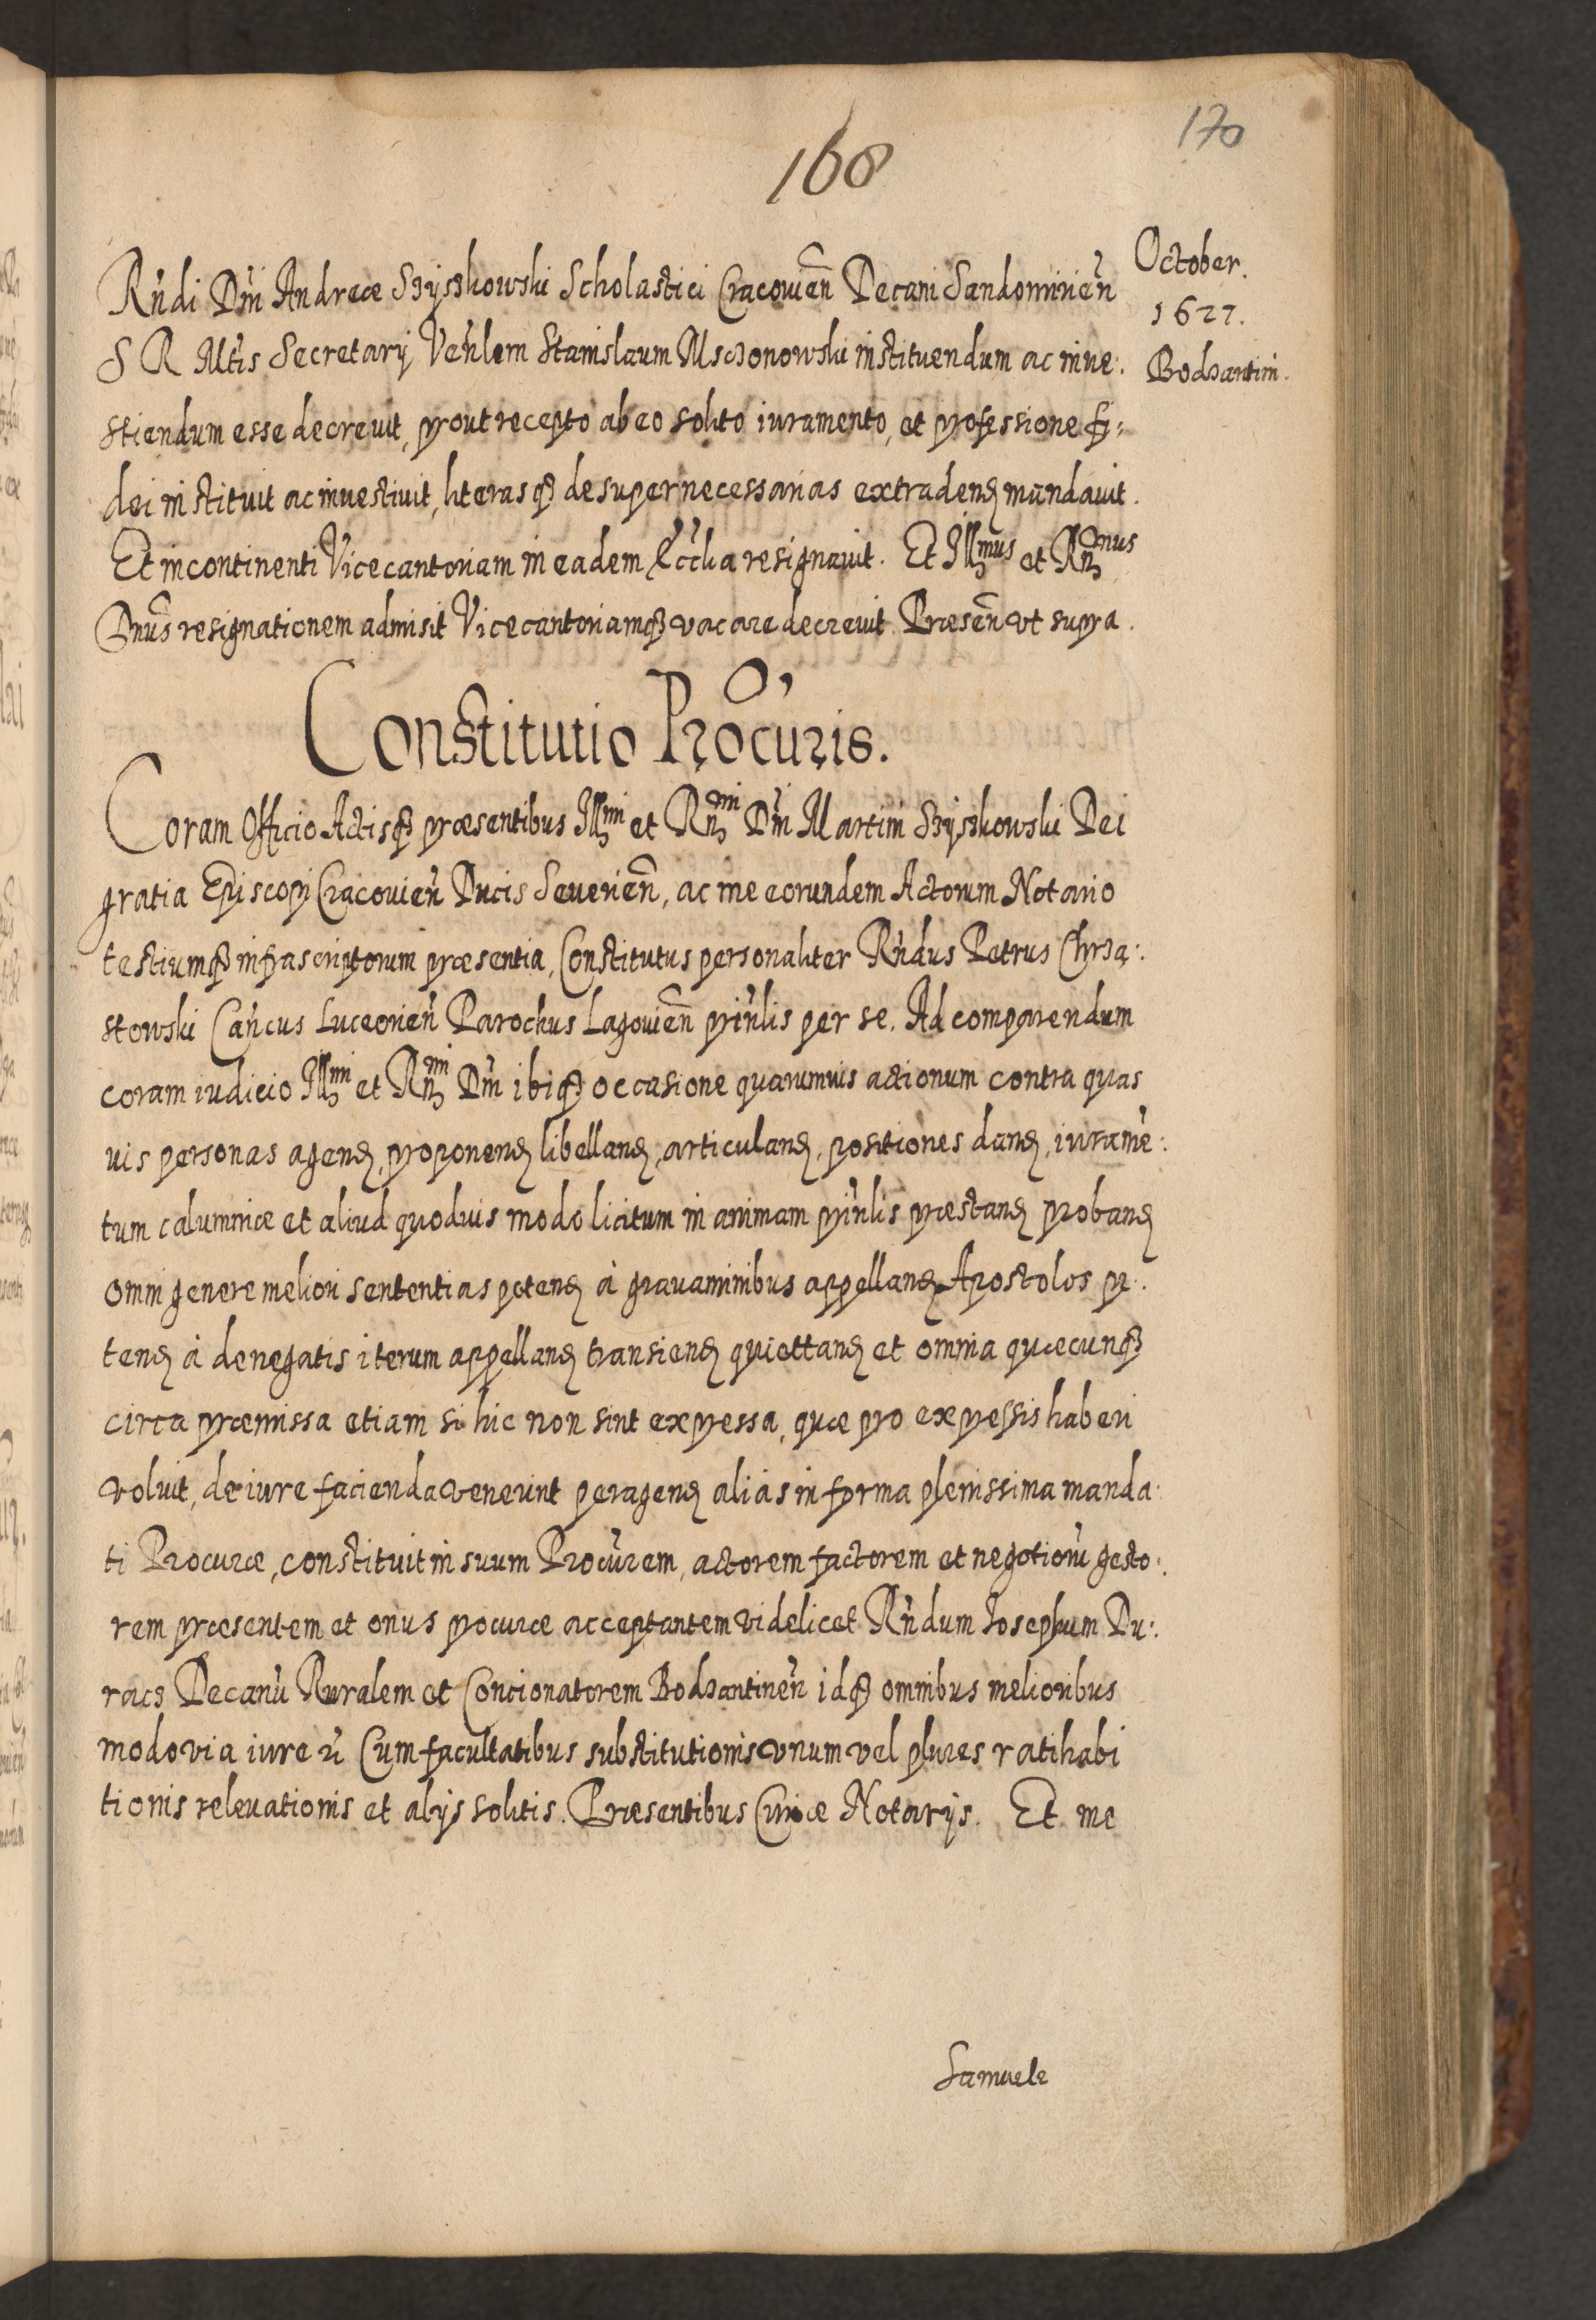 168
170
October.
1627.
Bodzantini.
Rńdi Dńi Andreæ Szyszkowski Scholastici Cracouien̄ Decani Sandomirien̄
S R Mtis Secretarij Veńlem Stanislaum Mschonowski instituendum ac inue:
stiendum esse decreuit, prout recepto ab eo solito iuramento, et professione fi:
dei instituit ac inuestiuit, literasqꝫ desuper necessarias extradenꝫ mandauit.
Et incontinenti Vicecantoriam in eadem Ecclia resignauit. Et Illꝫmus et Rnꝫmus
Dnus resignationem admisit Vicecantoriamqꝫ vacare decreuit Præsen̄ vt supra.
Constitutio Procuris.
Coram Officio Actisqꝫ præsentibus Illꝫmi et Rnꝫmi Dńi Martini Szyszkowski Dei
gratia Episcopi Cracouien̄ Ducis Seuerien̄, ac me eorundem Actorum Notario
testiumqꝫ infrascriptorum præsentia, Constitutus personaliter Rńdus Petrus Chrzą:
stowski Cańcus Luceorien̄ Parochus Lagouien̄ prinlis per se. Ad comparendum
coram iudicio Illꝫmi et Rnꝫmi Dńi ibiqꝫ occasione quarumuis actionum contra quas
uis personas agenꝫ, proponenꝫ libellanꝫ, articulanꝫ, positiones danꝫ, iurame:
tum calumniæ et aliud quoduis modo licitum in animam prinlis præstanꝫ probanꝫ
omni genere meliori sententias petenꝫ à grauaminibus appellanꝫ Apostolos pe:
tenꝫ à denegatis iterum appellanꝫ transienꝫ quiettanꝫ et omnia quæcunqꝫ
circa præmissa etiam si hic non sint expressa, quæ pro expressis haberi
voluit, de iure facienda venerint peragenꝫ aliàs in forma plenissima manda:
ti Procuræ, constituit in suum Procurem, actorem factorem et negotioru gesto:
rem præsentem et onus procuræ acceptantem videlicet Rńdum Iosephum Du:
racz Decanu Ruralem et Concionatorem Bodzantinen̄ idqꝫ omnibus melioribus
modo via iure ꝛc Cum facultatibus substitutionis vnum vel plures ratihabi
tionis releuationis et alijs solitis. Præsentibus Curiæ Notarijs. Et me
Samuele